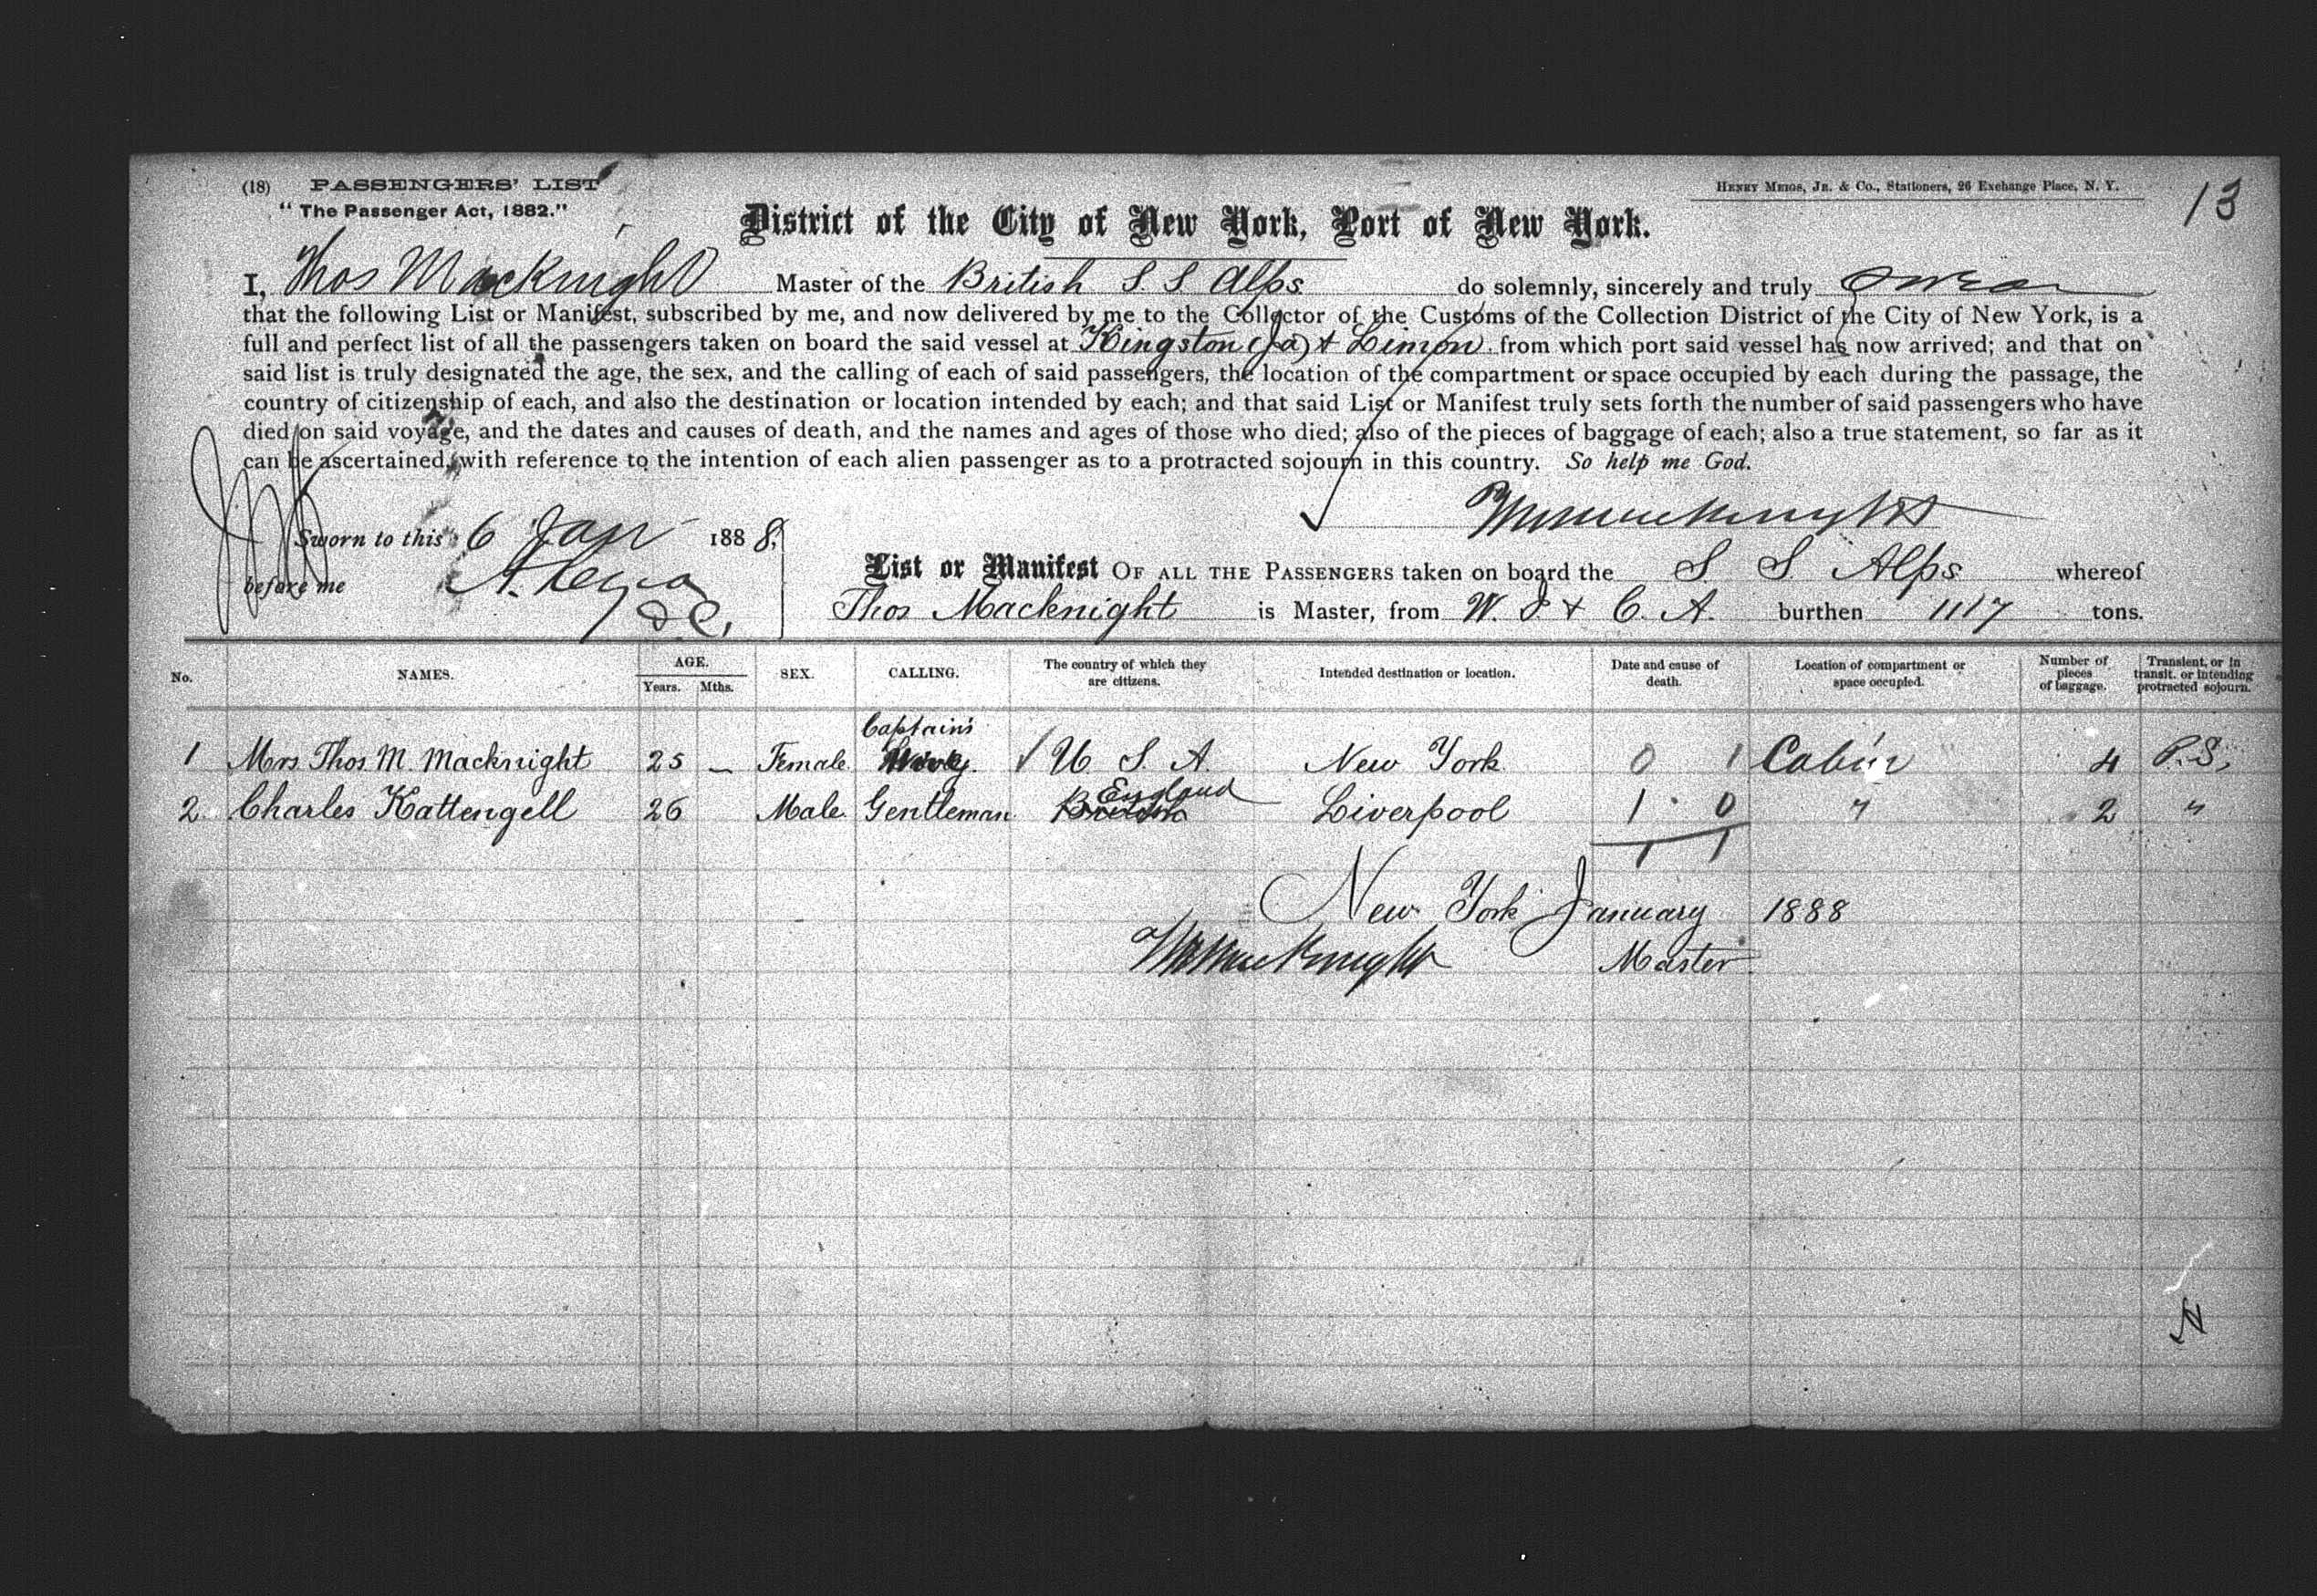 (18) PASSENGERS' LIST
HENRY MEIGS, JR. & Co., Stationers, 26 Exchange Place, N. Y.
13
"The Passenger Act, 1882."
District of the City of New York, Port of New York.
I, Thos Macknight Master of the British S. S Alps do solemnly, sincerely and truly swear
that the following List or Manifest, subscribed by me, and now delivered by me to the Collector of the Customs of the Collection District of the City of New York, is a
full and perfect list of all the passengers taken on board the said vessel at Kingston (Ja) & Limon from which port said vessel has now arrived; and that on
said list is truly designated the age, the sex, and the calling of each of said passengers, the location of the compartment or space occupied by each during the passage, the
country of citizenship of each, and also the destination or location intended by each; and that said List or Manifest truly sets forth the number of said passengers who have
died on said voyage, and the dates and causes of death, and the names and ages of those who died; also of the pieces of baggage of each; also a true statement, so far as it
can be ascertained, with reference to the intention of each alien passenger as to a protracted sojourn in this country. So help me God.
Sworn to this 6 Jan 1888,
before me
List or Manifest OF ALL THE PASSENGERS taken on board the S. S. Alps whereof
Thos Macknight is Master, from W. I & C. A. burthen 1117 tons.
No. NAMES. AGE. Years. Mths. SEX. CALLING. The country of which they are citizens. Intended destination or location. Date and cause of death. Location of compartment or space occupied. Number of pieces of baggage. Transient, or in transit, or intending protracted sojourn.
Captain's
1 Mrs Thos. M. Macknight 25 — Female U. S. A. New York 0 1 Cabin 4 P.S.
England
2. Charles Kattengell 26 Male. Gentleman British Liverpool 1 0 " 2 "
1 1
New York January 1888
Master
N